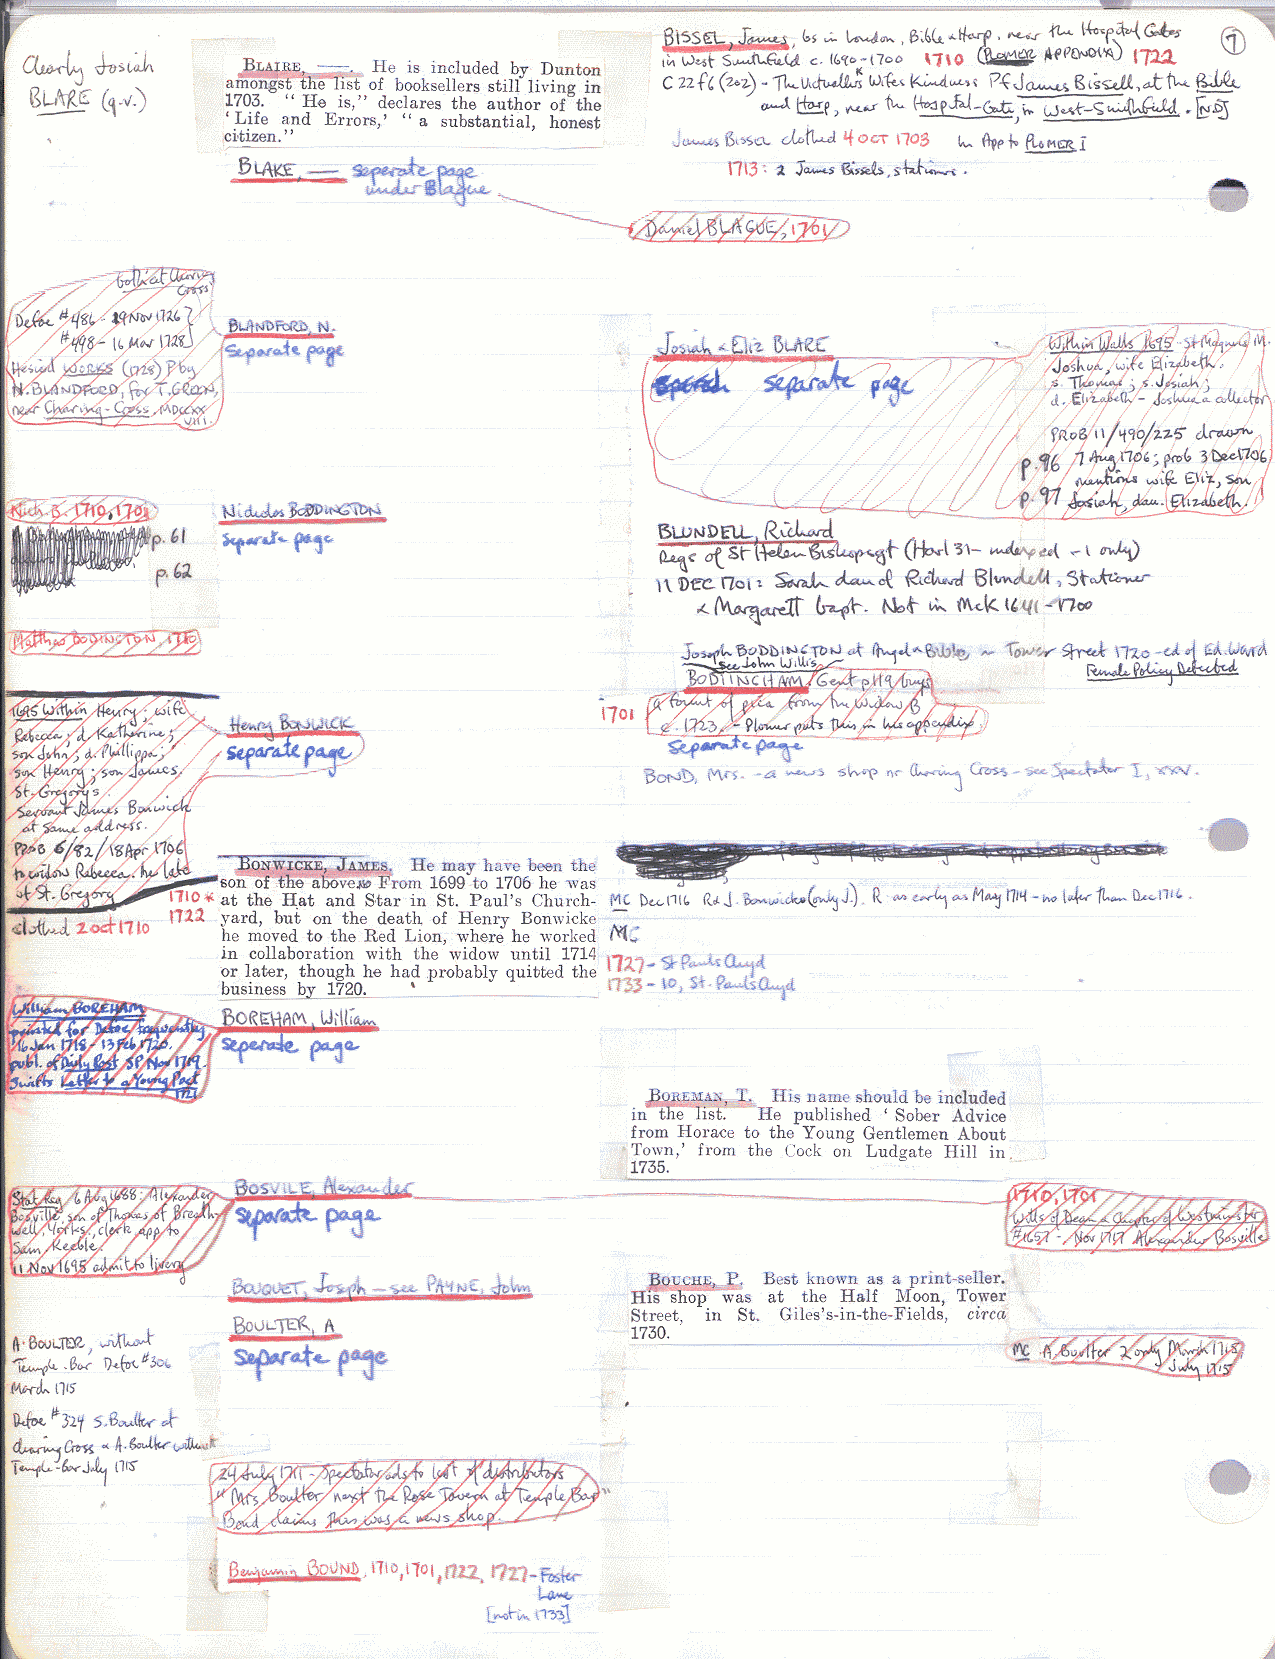 7
Clearly Josiah
BLARE (q.v.)
BLAIRE, ——. He is included by Dunton
amongst the list of booksellers still living in
1703. “ He is,” declares the author of the
‘ Life and Errors,’ “ a substantial, honest
citizen.”
BLAKE, — seperate page
under Blague
BISSEL, James, bs in London, Bible & Harp, near the Hospital Gates
in West Smithfield c. 1690-1700 1710 (PLOMER APPENDIX) 1722
C 22 f 6 (202) - The Victuallers Wifes Kindness Pf James Bissell, at the Bible
and Harp, near the Hospital-Gate, in West-Smithfield. [ND]
James Bissel clothed 4 OCT 1703 In App to PLOMER I
1713: 2 James Bissels, stationers.
Daniel BLAGUE, 1701
Gothic at Charing
Cross
Defoe #486 - 29 Nov 1726
#498 - 16 Mar 1728
Hesiod WORKS (1728) P by
N. BLANDFORD, for T. GREEN,
near Charing-Cross, MDCCXX
VIII.
BLANDFORD, N.
Separate page
Josiah & Eliz BLARE
separate page
Within Walls 1695 - St Magnus M.
Joshua, wife Elizabeth.
s. Thomas; s. Josiah;
d. Elizabeth - Joshua a collector
PROB 11/490/225 drawn
p.96 7 Aug 1706; prob 3 Dec 1706
mentions wife Eliz, son
p.97 Josiah, dau. Elizabeth.
Nich B. 1710, 1701
p. 61
p. 62
Nicholas BODDINGTON
separate page
Matthas BODINGTON, 1710
BLUNDELL, Richard
Regs of St Helen Bishopsgt (Harl 31 - indexed - 1 only)
11 DEC 1701: Sarah dau of Richard Blundell, Stationer
& Margarett bapt. Not in McK 1641-1700
Joseph BODDINGTON at Angel & Bible in Tower Street 1720 - ed of Ed. Ward
see John Willis Female Policy Detected
BODTINCHAM, Gent p119 buys
1701 a fount of pica from the Widow B
c. 1723. - Plomer puts this in his appendix.
Separate page
BOND, Mrs. - a news shop nr Charing Cross - see Spectator I, xxv.
1695 Within Henry; wife
Rebecca; d Katherine;
son John; d. Phillippa;
son Henry; son James.
St. Gregory's
Servant James Bonwick
at same address.
PROB 6/82/18 Apr 1706
to widow Rebecca. he late
of St. Gregory
clothed 2 oct 1710
Henry BONWICK
separate page
1710*
1722
BONWICKE, JAMES. He may have been the
son of the above. From 1699 to 1706 he was
at the Hat and Star in St. Paul's Church-
yard, but on the death of Henry Bonwicke
he moved to the Red Lion, where he worked
in collaboration with the widow until 1714
or later, though he had probably quitted the
business by 1720.
MC Dec 1716 R & J. Bonwicke (only J.). R as early as May 1714 - no later than Dec 1716.
MC
1727 - St Pauls Chyd
1733 - 10, St. Pauls Chyd
William BOREHAM
printed for Defoe frequently
16 Jan 1718 - 13 Feb 1720.
publ. of Daily Post SP Nov 1719.
Swifts Letter to a Young Poet
1721
BOREHAM, William
seperate page
BOREMAN, T. His name should be included
in the list. He published ‘ Sober Advice
from Horace to the Young Gentlemen About
Town,’ from the Cock on Ludgate Hill in
1735.
Stat Reg 6 Aug 1688: Alexander
Bosville, son of Thomas of Breath-
well, Yorks., clerk app to
Sam Keeble.
11 Nov 1695 admit to livery
BOSVILE, Alexander
separate page
1710, 1701
Wills of Dean & Chapter of Westminster
#1657 - Nov 1717 Alexander Bosville
BOUQUET, Joseph - see PAYNE, John
BOUCHE, P. Best known as a print-seller.
His shop was at the Half Moon, Tower
Street, in St. Giles's-in-the-Fields, circa
1730.
BOULTER, A
separate page
A. BOULTER, without
Temple-Bar Defoe #306
March 1715
Defoe #324 S. Boulter at
Charing Cross & A. Boulter without
Temple-bar July 1715
MC A. Boulter 2 only March 1715,
July 1715
24 July 1711 - Spectator adds to list of distributors
“Mrs Boulter next the Rose Tavern at Temple Bar”
Bond claims this was a news shop.
Benjamin BOUND, 1710, 1701, 1722, 1727 - Foster
Lane
[not in 1733]